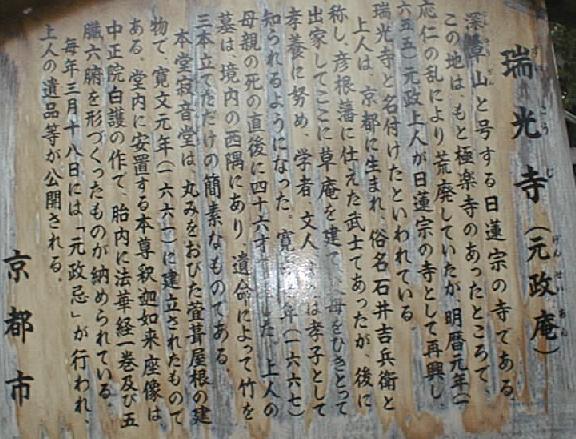 瑞光寺(元政庵)
深草山と号する日蓮宗の寺である。
この地は、もと極楽寺のあったところで、
応仁の乱により荒廃していたが、明暦元年(一
六五五)元政上人が日蓮宗の寺として再興し、
瑞光寺と名付けたといわれている。
上人は、京都に生まれ、俗名石井吉兵衛と
称し、彦根藩に仕えた武士であったが、後に
出家してここに草庵を建て、母をひきとって
孝養に努め、学者、文人、は孝子として
知られるようになった。寛年(一六六七)
母親の死の直後に四十六才した。上人の
墓は、境内の西隅にあり、遺命によって竹を
三本立てただけの簡素なものである。
本堂寂音堂は、丸みをおびた萱葺屋根の建
物で、寛文元年(一六六一)に建立されたもので
ある。堂内に安置する本尊釈迦如来座像は、
中正院白護の作で、胎内に法華経一巻及び五
臓六腑を形づくったものが納められている。
毎年三月十八日には「元政忌」が行われ、
上人の遺品等が公開される。
京都市